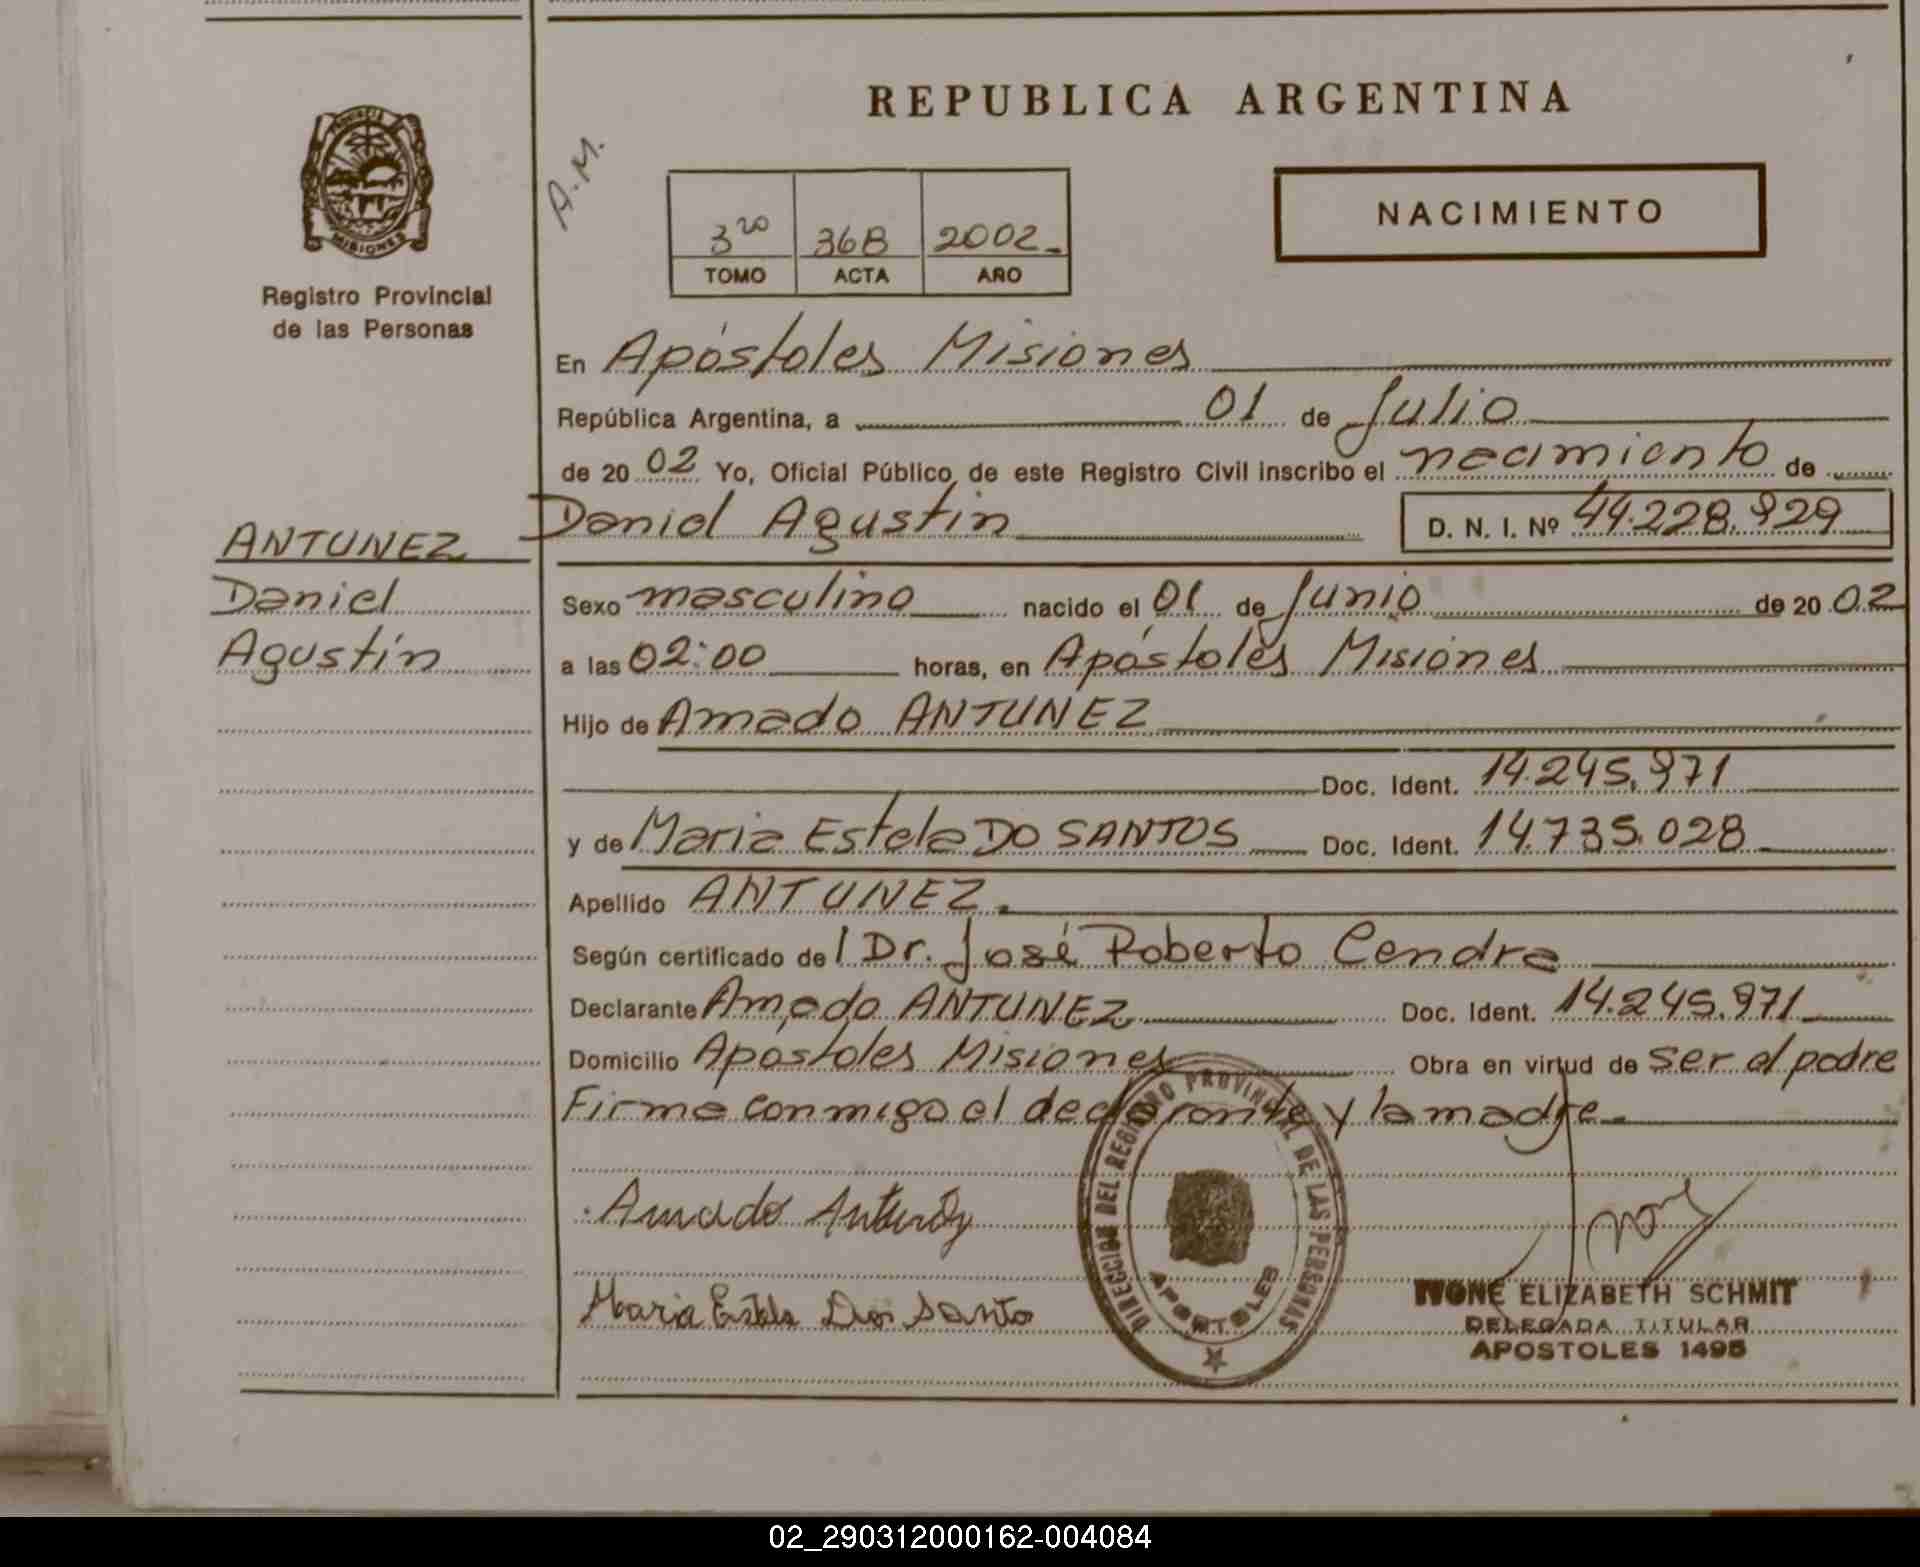 REPUBLICA ARGENTINA
PROVINCIA
MISIONES
Registro Provincial
de las Personas
A.M.
3ro 368 2002
TOMO ACTA AÑO
NACIMIENTO
En Apóstoles Misiones
República Argentina, a 01 de Julio
de 20 02 Yo, Oficial Público de este Registro Civil inscribo el nacimiento de
Daniel Agustin D. N. I. Nº 44.228.929
ANTUNEZ
Daniel
Agustín
Sexo masculino nacido el 01 de Junio de 20 02
a las 02:00 horas, en Apóstoles Misiones
Hijo de Amado ANTUNEZ
Doc. Ident. 14.245.971
y de Maria Estela DO SANTOS Doc. Ident. 14.735.028
Apellido ANTUNEZ.
Según certificado de l Dr. José Roberto Cendra
Declarante Amado ANTUNEZ Doc. Ident. 14.245.971
Domicilio Apostoles Misiones Obra en virtud de ser el padre
Firma conmigo el declarante y la madre.
Amado Antunez
Maria Estela Dos Santo
DIRECCION DEL REGISTRO PROVINCIAL DE LAS PERSONAS
APOSTOLES
IVONE ELIZABETH SCHMIT
DELEGADA TITULAR
APOSTOLES 1495
02_290312000162-004084